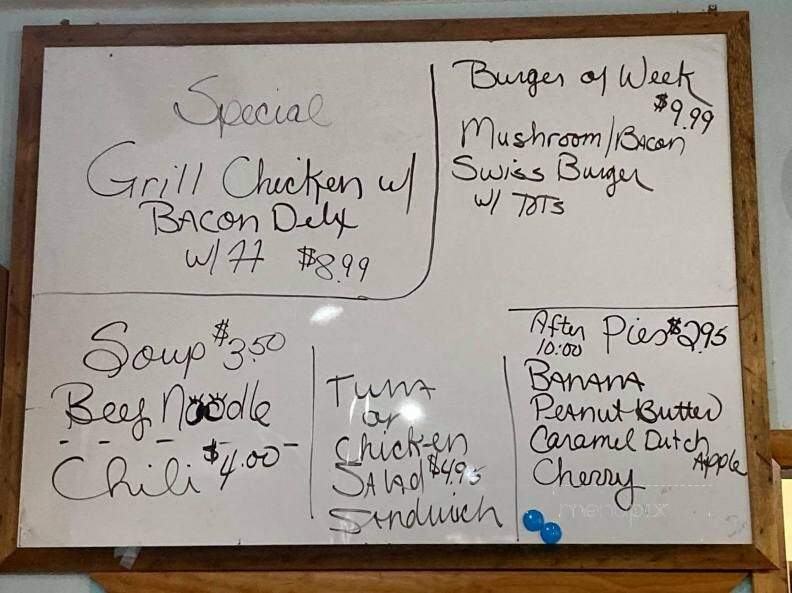 Special
Grill Chicken w/
BACON Delx
w/ FF $8.99
Burger of Week
$9.99
Mushroom/BACON
Swiss Burger
w/ TOTS
Soup $3.50
Beef Noodle
Chili $4.00
TUNA
or
Chicken
SALAD $4.95
Sandwich
After
10:00
Pies $2.95
BANANA
PeANut Butter
Caramel Dutch
Apple
Cherry
menupix